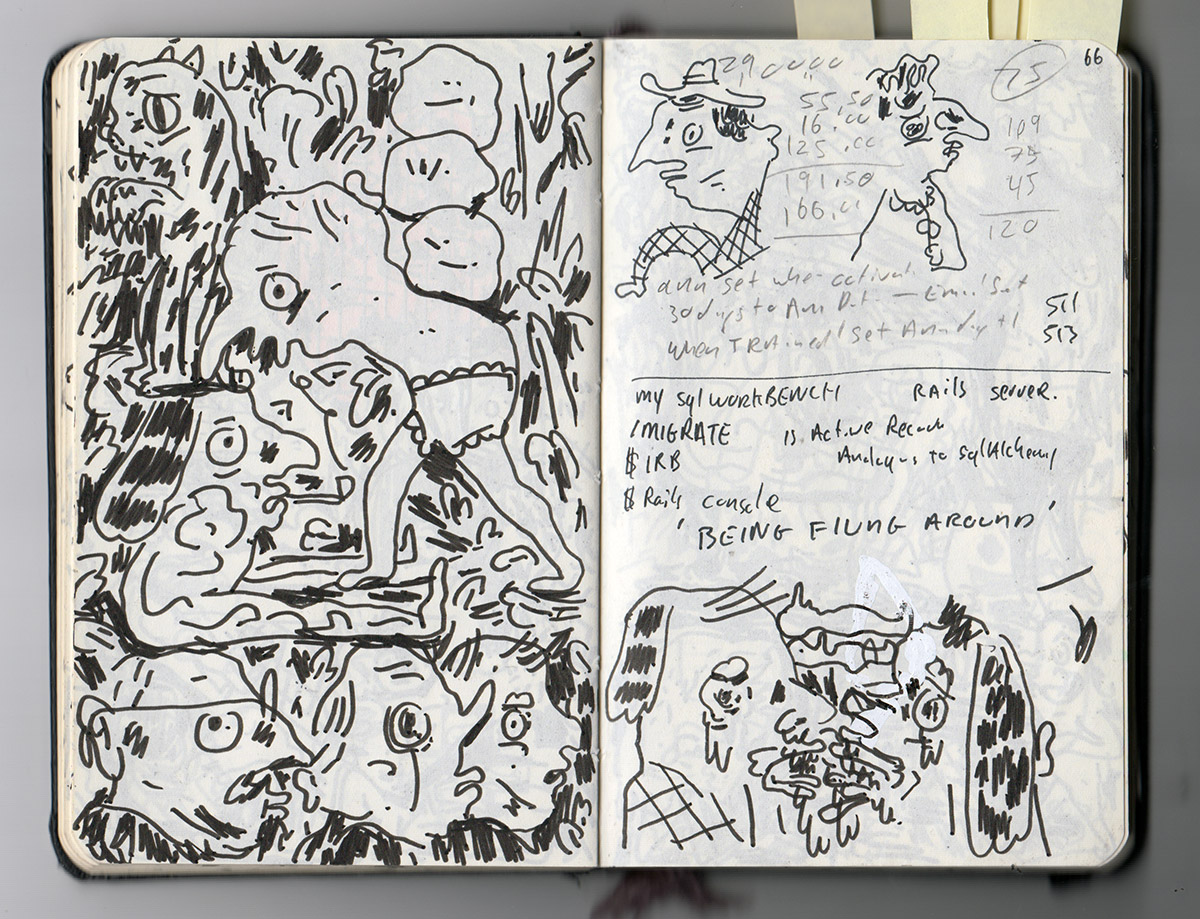 66
29
75
55.50
16.00
125.00
191.50
166.00
109
75
45
120
ann set when
30 days to Ann — Email Set
when set Ann +1
511
513
my sqlWORKBENCH Rails server.
/MIGRATE is Active Record
Analogus to SqlAlchemy
$ IRB
$ Rails console
'BEING FLUNG AROUND'